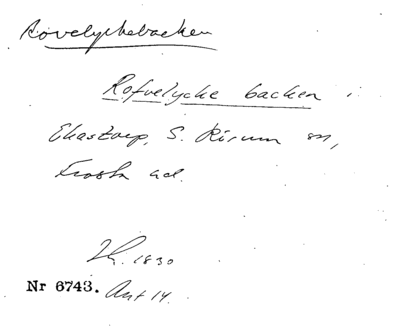 Rovelyckebacken
Rofvelycke backen i
Ekastorp, S. Rörum sn,
Frosta hd.
Lh. 1830
Nr 6743. Ant 14.